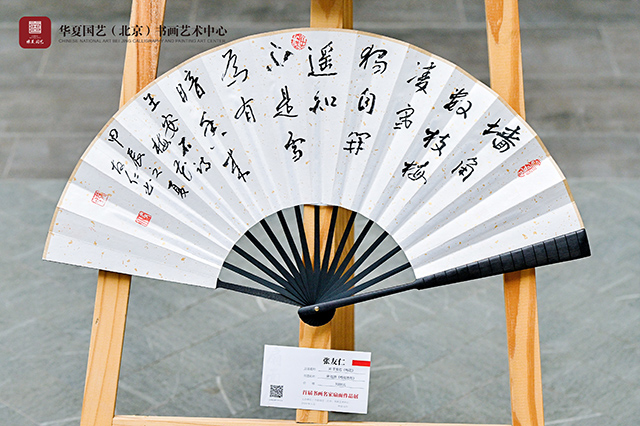 华夏国艺（北京）书画艺术中心
CHINESE NATIONAL ART BEIJING CALLIGRAPHY AND PAINTING ART CENTER
华夏国艺
墙角
数枝梅
凌寒
独自開
遥知
不是雪
為有
暗香来
王安石梅花诗
甲辰江夏
友仁书
张友仁
首届书画名家扇面作品展